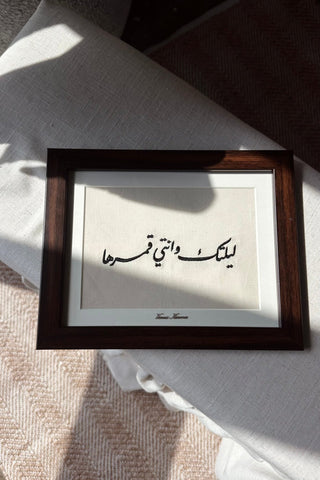 ليلتك وانتي قمرها